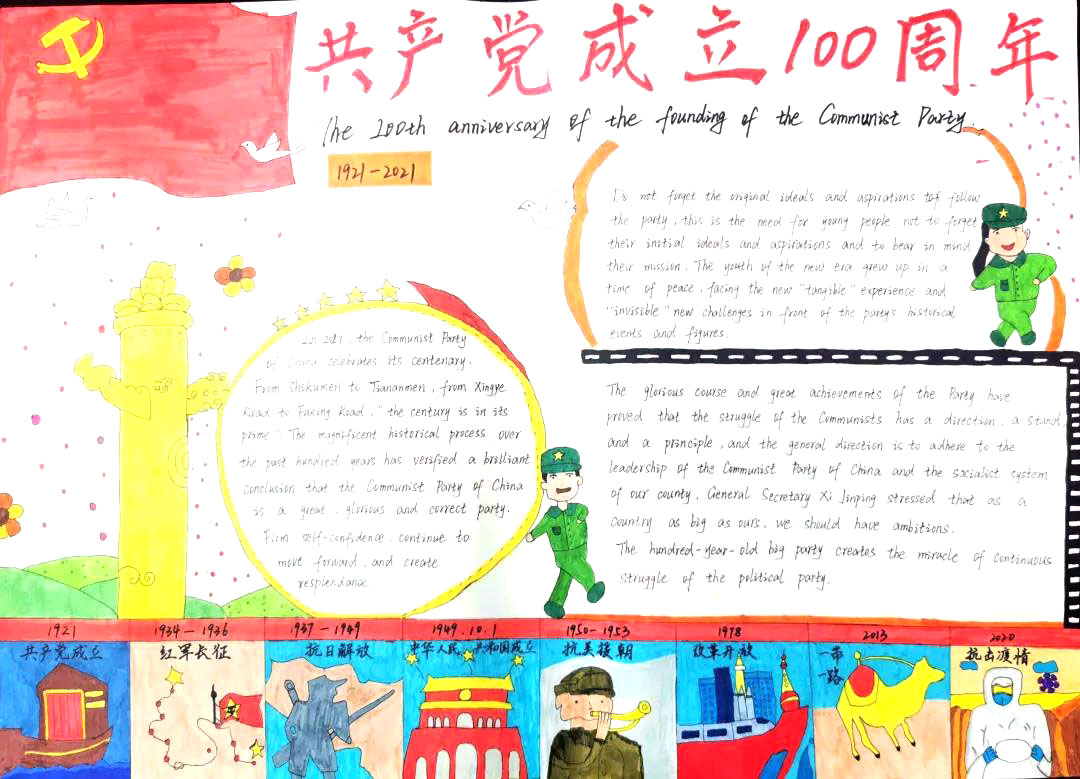 共产党成立100周年
The 100th anniversary of the founding of the Communist Party.
1921-2021
Do not forget the original ideals and aspirations to follow
the party, this is the need for young people not to forget
their initial ideals and aspirations and to bear in mind
their mission. The youth of the new era grew up in a
time of peace, facing the new "tangible" experience and
"invisible" new challenges in front of the party's historical
events and figures.
In 2021, the Communist Party
of China celebrates its centenary.
From Shikumen to Tiananmen, from Xingye
Road to Fuxing Road, "the century is in its
prime". The magnificent historical process over
the past hundred years has verified a brilliant
conclusion that the Communist Party of China
is a great, glorious and correct party.
Firm self-confidence, continue to
move forward, and create
resplendance
The glorious course and great achievements of the Party have
proved that the struggle of the Communists has a direction, a stand
and a principle, and the general direction is to adhere to the
leadership of the Communist Party of China and the socialist system
of our county. General Secretary Xi Jinping stressed that as a
country as big as ours, we should have ambitions.
The hundred-year-old big party creates the miracle of continuous
struggle of the political party.
1921
共产党成立
1934-1936
红军长征
1937-1949
抗日解放
1949.10.1
中华人民共和国成立
1950-1953
抗美援朝
1978
改革开放
2013
一带
一路
2020
抗击疫情